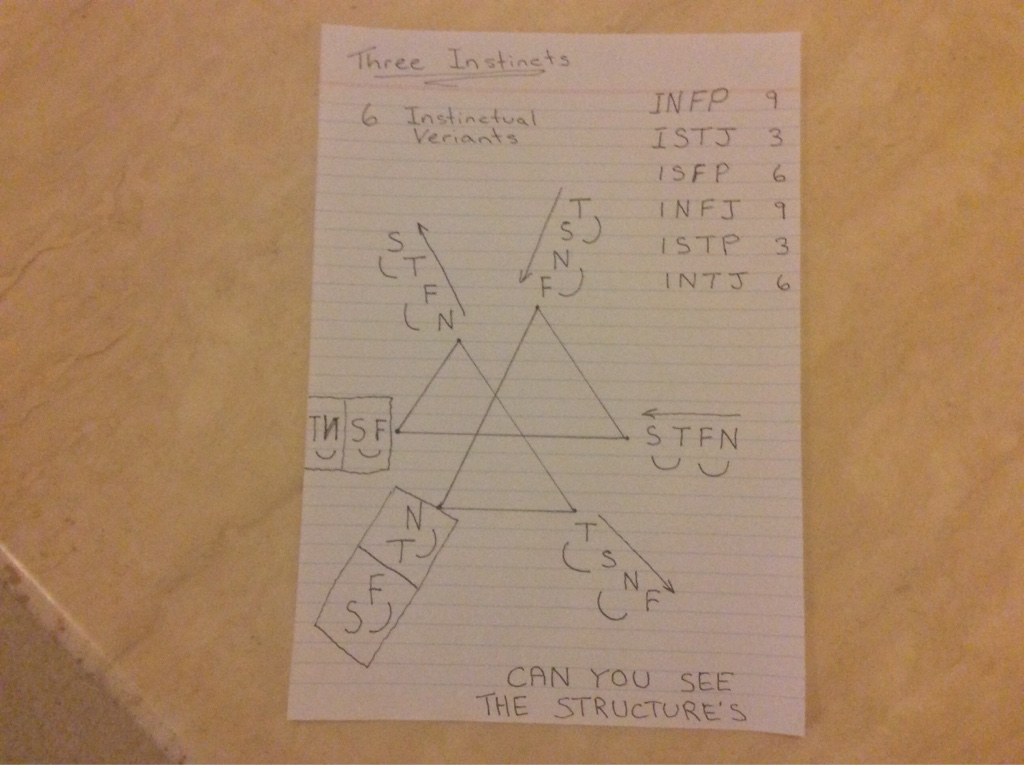 Three Instincts
6 Instinctual
Veriants
INFP 9
ISTJ 3
ISFP 6
INFJ 9
ISTP 3
INTJ 6
T
S
N
F
S
T
F
N
TN SF
S T F N
N
T
F
S
T
S
N
F
CAN YOU SEE
THE STRUCTURE'S